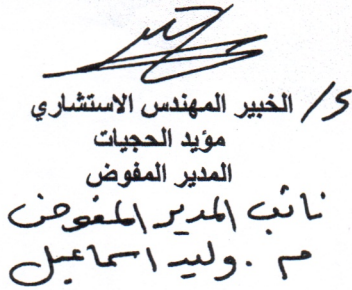 ع/ الخبير المهندس الاستشاري
مؤيد الحجيات
المدير المفوض
نائب المدير المفوض
م. وليد اسماعيل